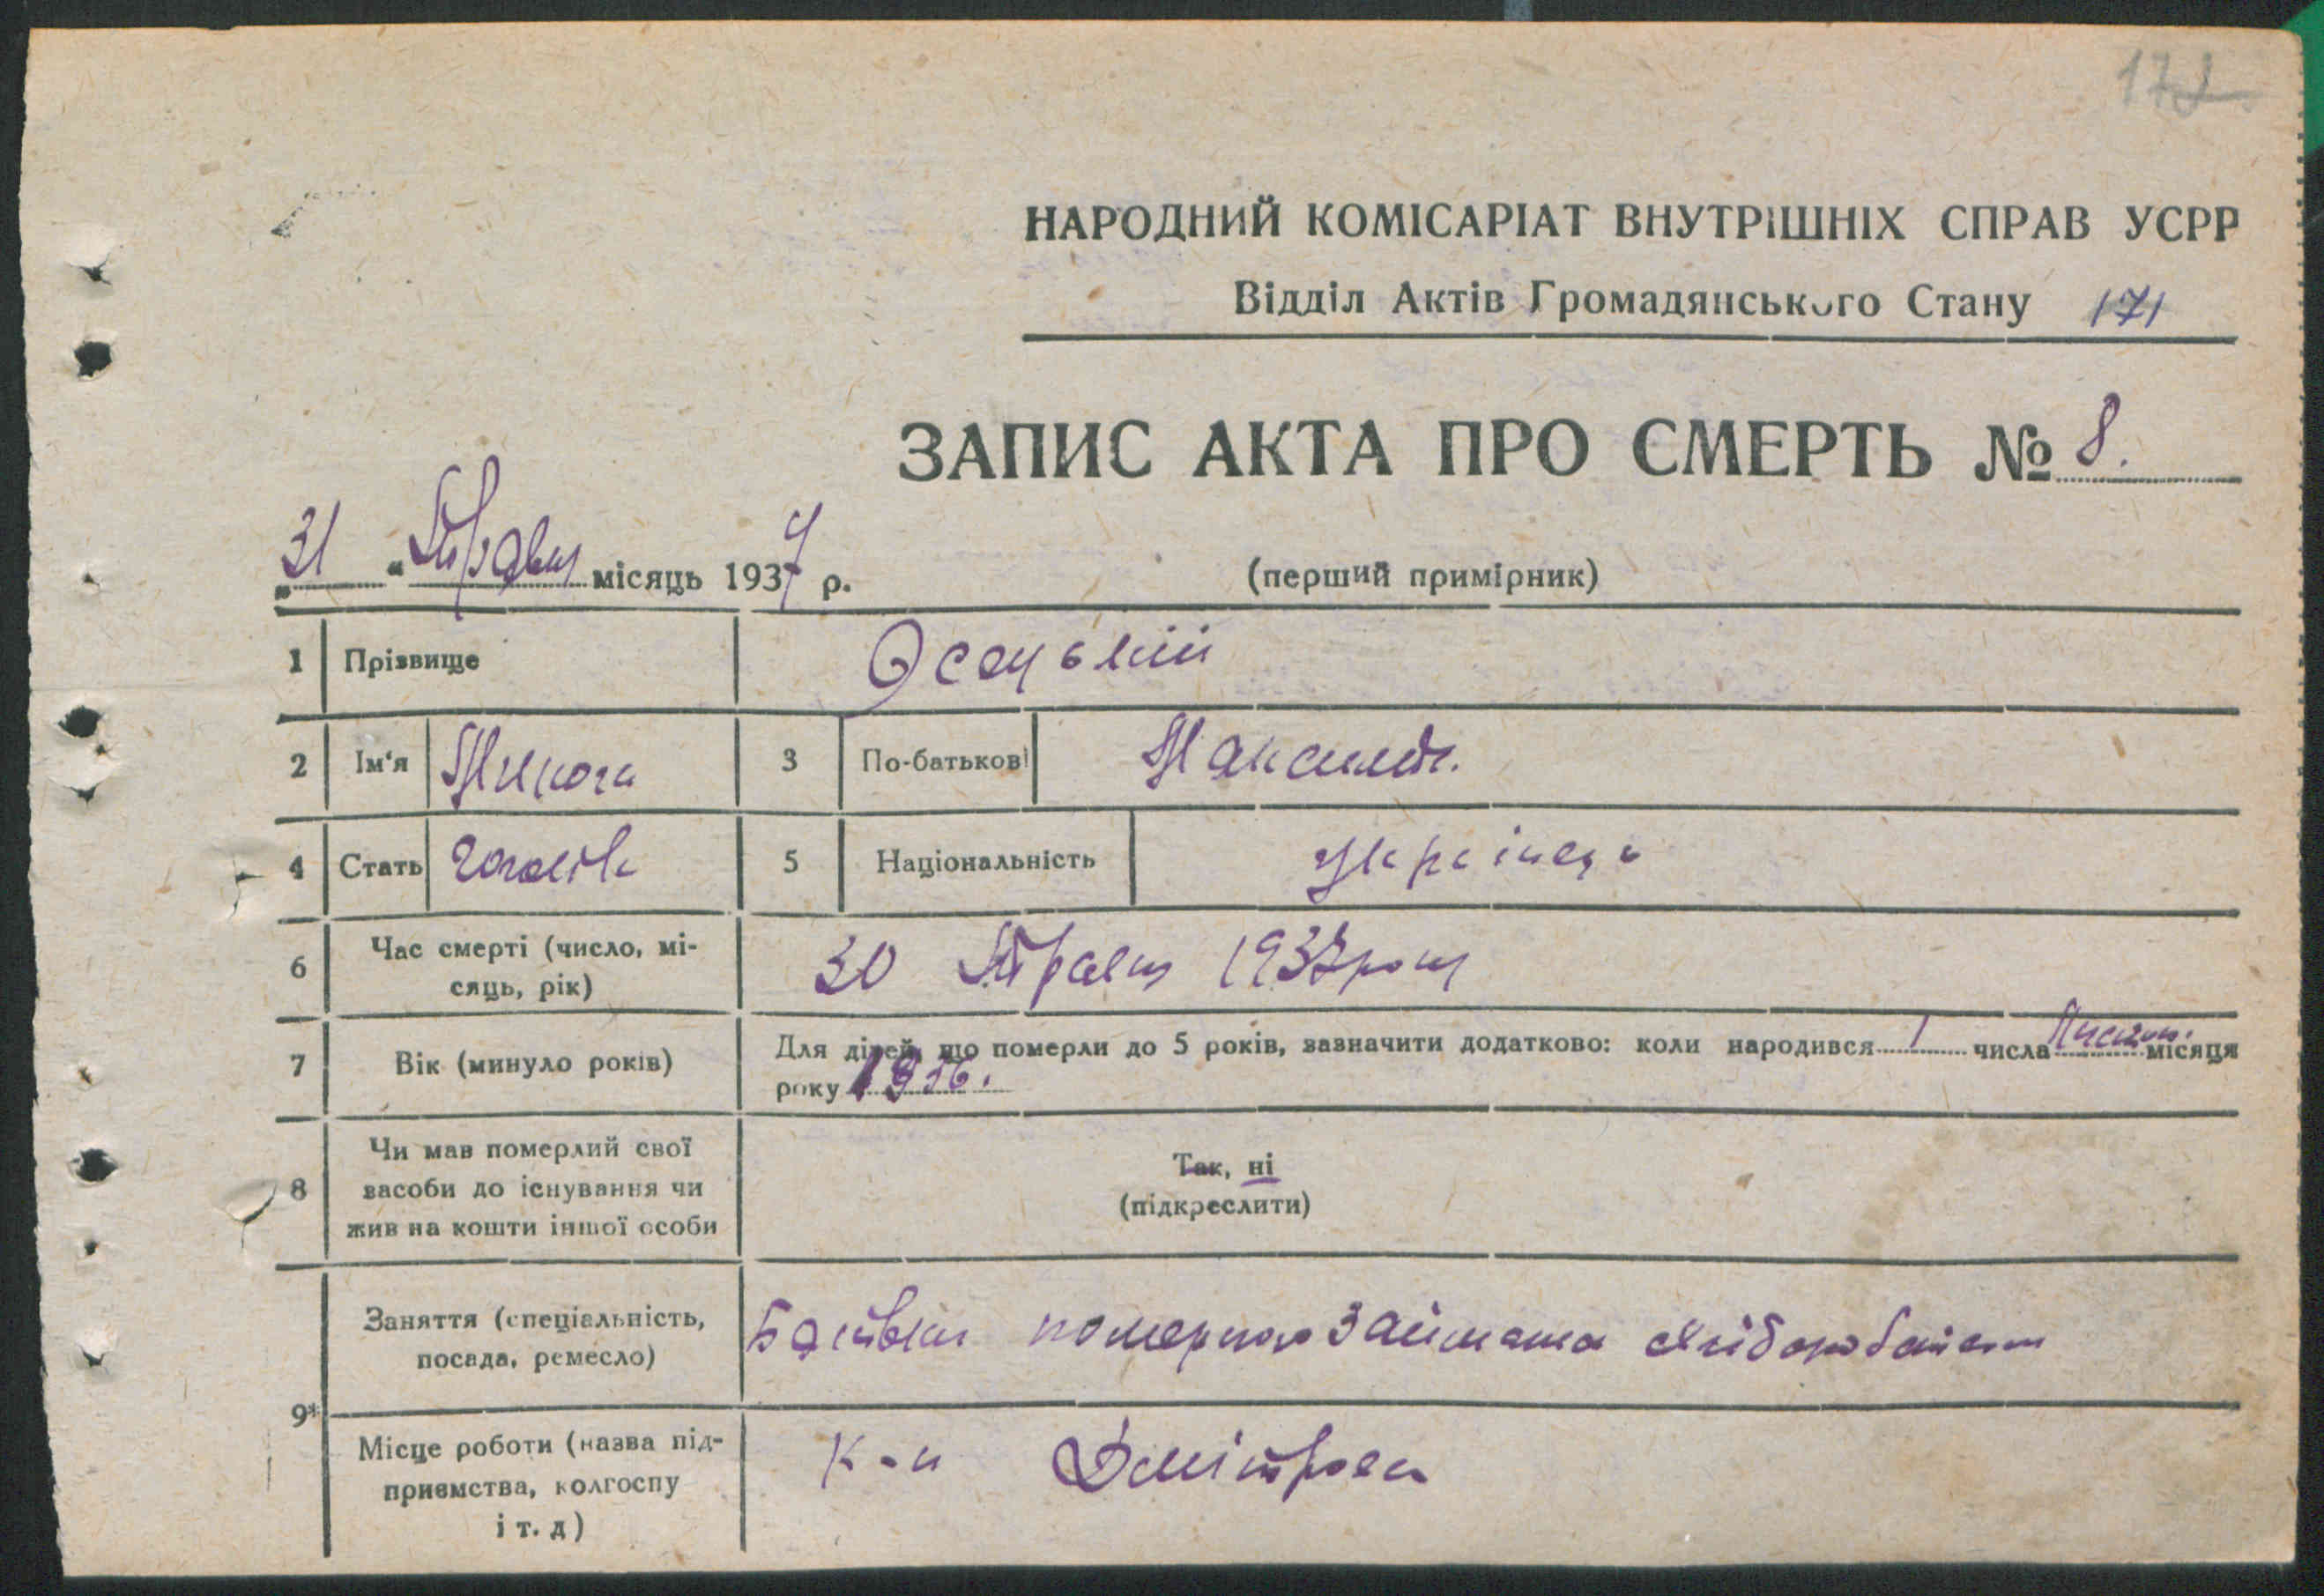 172
НАРОДНИЙ КОМІСАРІАТ ВНУТРІШНІХ СПРАВ УСРР
Відділ Актів Громадянського Стану 171
ЗАПИС АКТА ПРО СМЕРТЬ № 8.
„31“ Травня місяць 1937 р.
(перший примірник)
1 Прізвище
2 Ім'я Микола 3 По-батькові Максимов.
4 Стать чоловік 5 Національність українець
6 Час смерті (число, мі-
сяць, рік) 30 Травня 1937 року
7 Вік (минуло років) Для дітей, що померли до 5 років, зазначити додатково: коли народився 1 числа місяця
року 1936.
8 Чи мав померлий свої
засоби до існування чи
жив на кошти іншої особи
Так, ні
(підкреслити)
9* Заняття (спеціальність,
посада, ремесло) Батьки займа хліборобством
Місце роботи (назва під-
приємства, колгоспу
і т. д) К-п